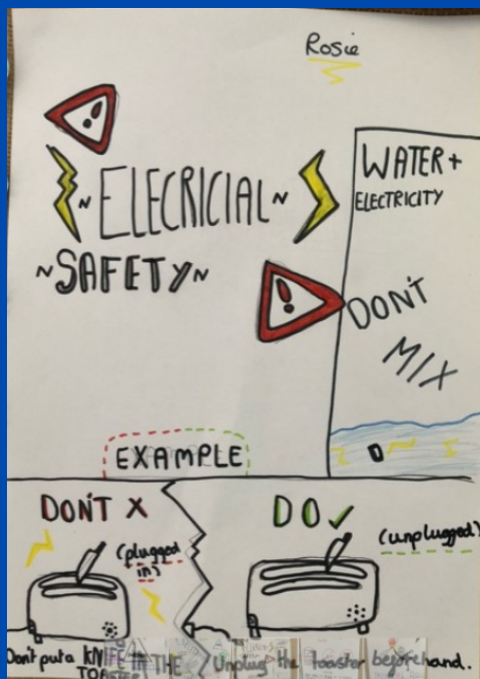 Rosie
~ELECRICIAL~
~SAFETY~
WATER+
ELECTRICITY
DON'T
MIX
EXAMPLE
DON'T X
(plugged
in)
Don't put a KNIFE IN THE
TOASTER
DO ✓
(unplugged)
Unplug the toaster beforehand.